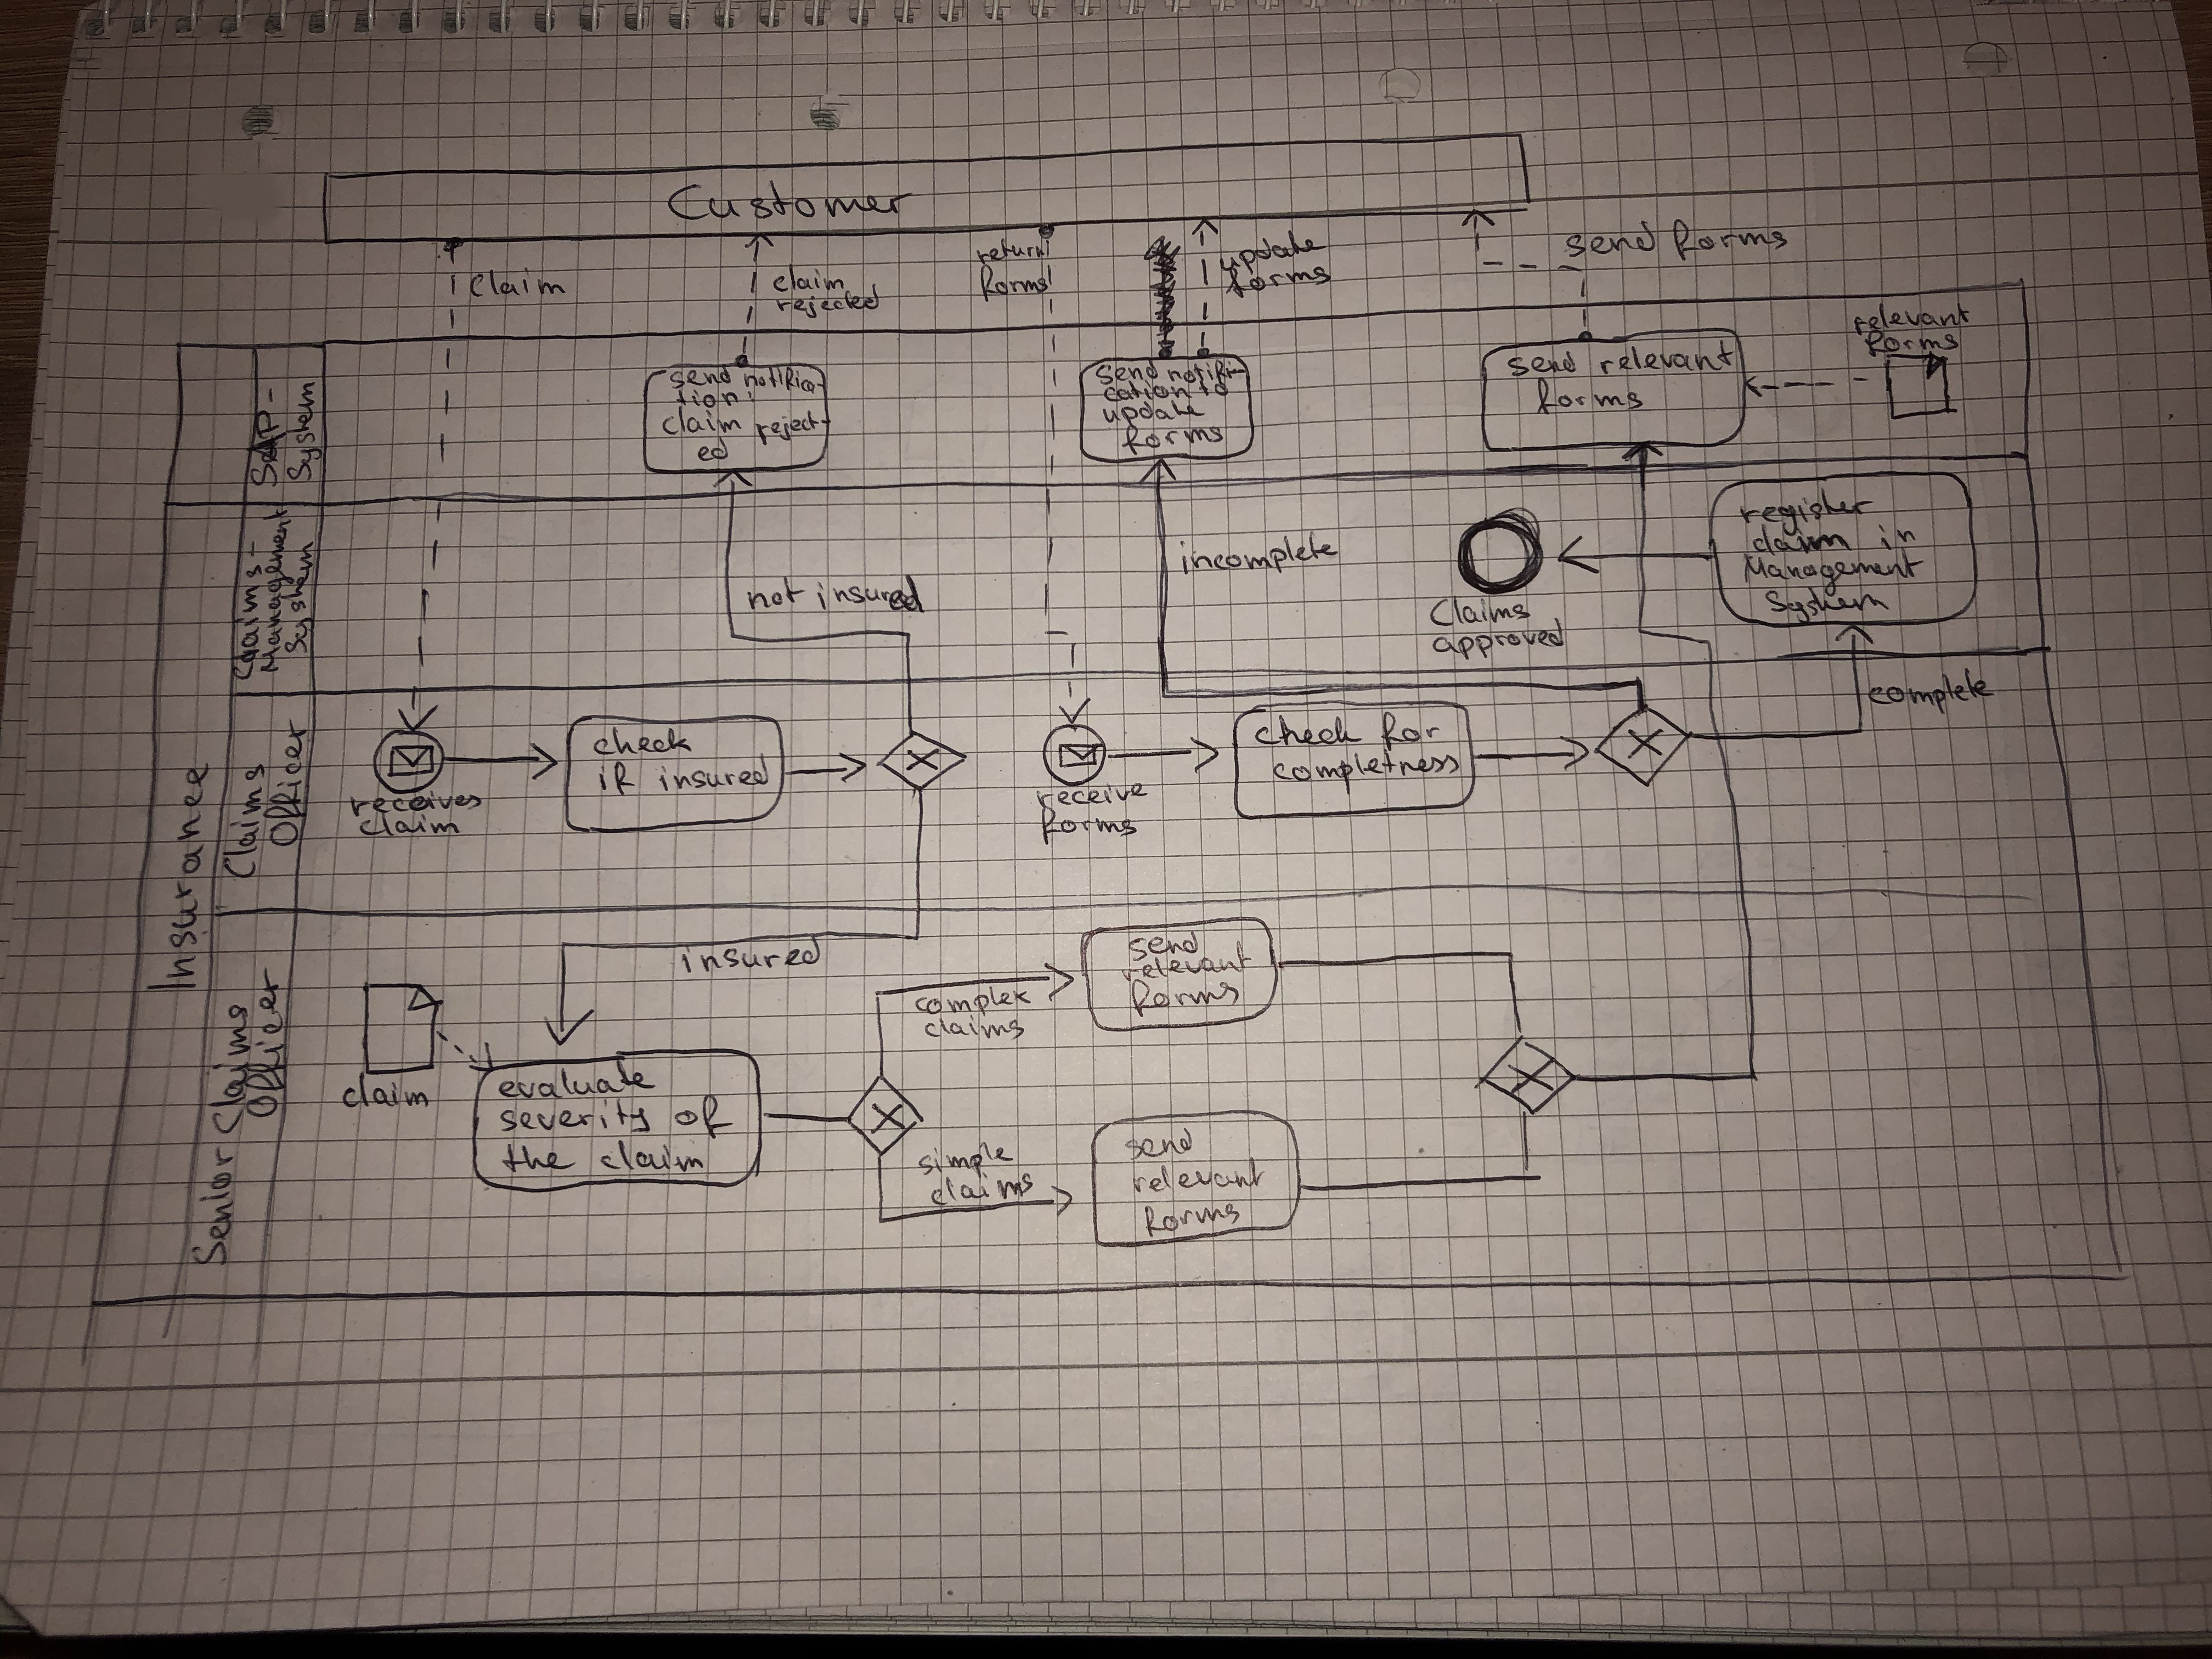 Customer
claim
claim
rejected
return
forms
update
forms
send forms
Insurance
System
send notifica-
tion:
claim reject-
ed
send notifi-
cation to
update
forms
send relevant
forms
relevant
forms
Claims-
Management
System
not insured
incomplete
Claims
approved
register
claim in
Management
System
complete
Claims
Officer
receives
claim
check
if insured
receive
forms
check for
completness
Senior Claims
Officer
insured
claim
evaluate
severity of
the claim
complex
claims
simple
claims
send
relevant
forms
send
relevant
forms